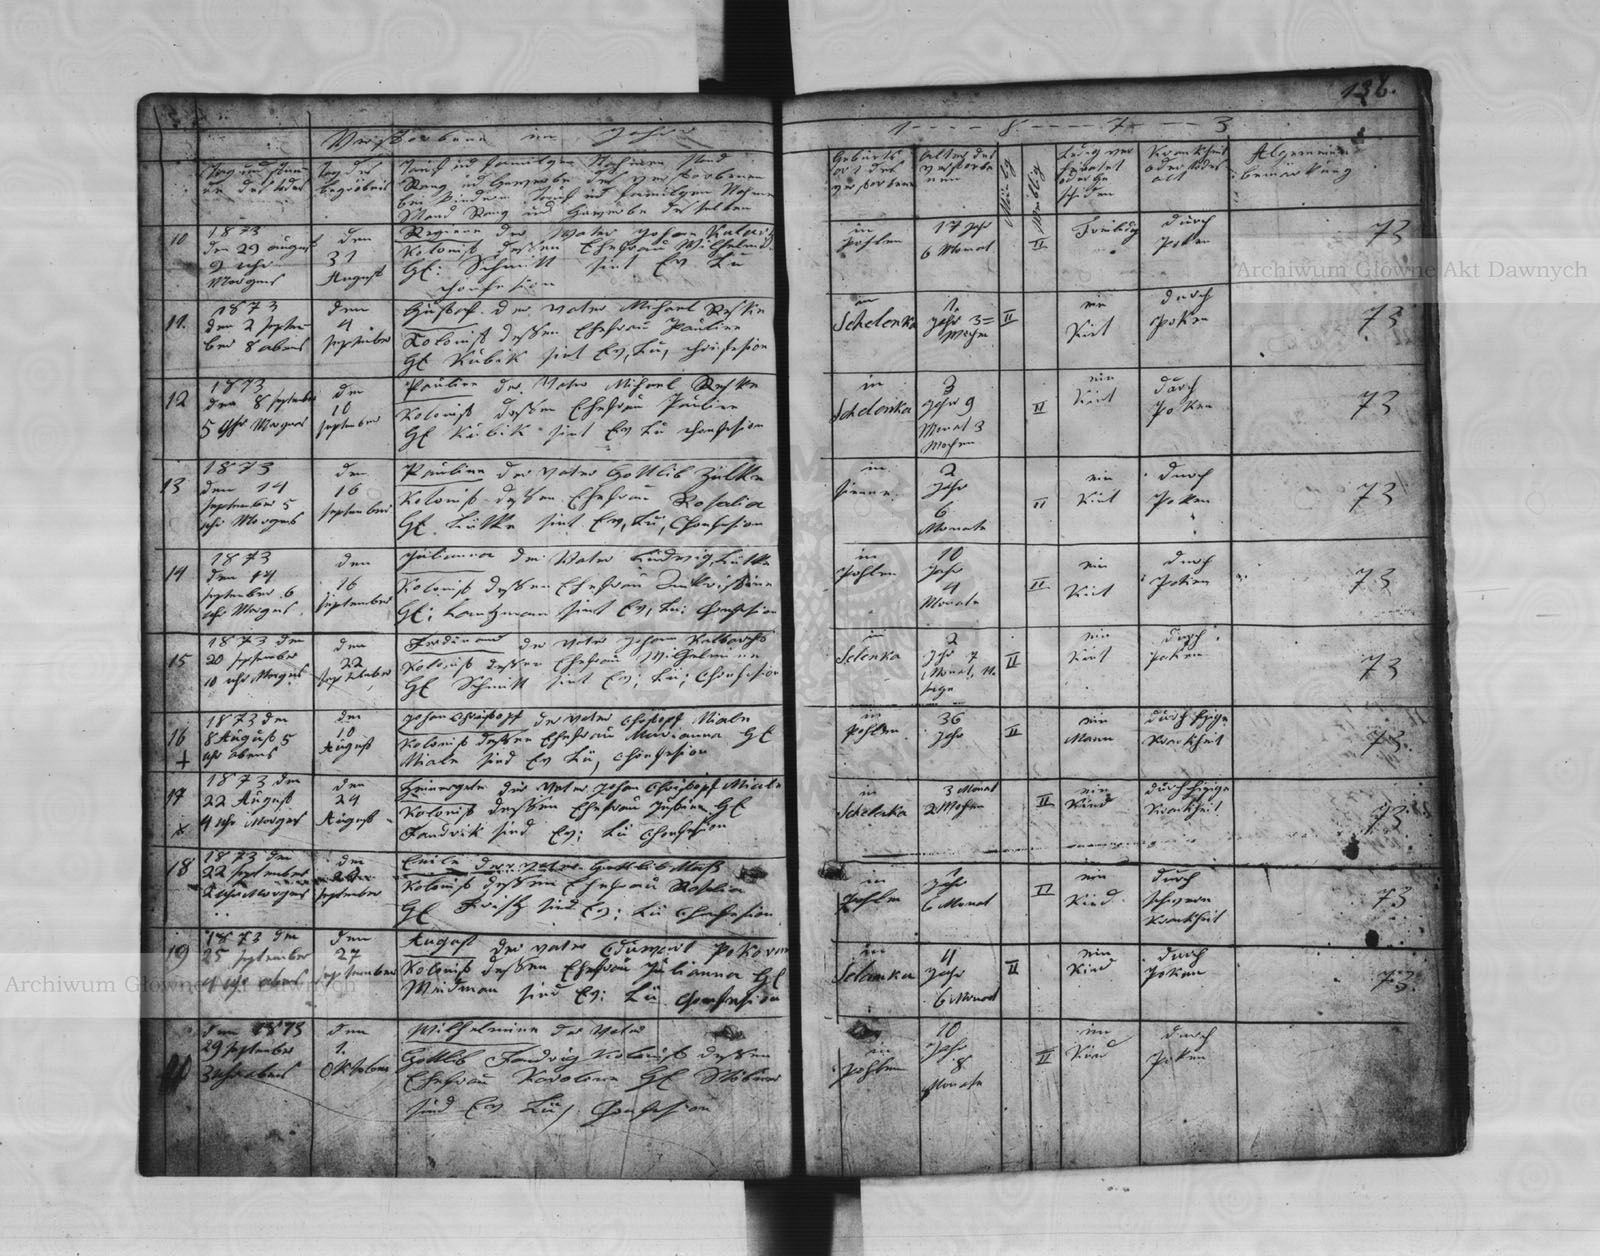 136.
Verstorbene im Jahre
1 - - - - 8 - - - - 7 - - - - 3
Tag und Stun
de des Todes
Tag der
Begräbnis
Tauf und Familgen Nahmen Stand
Rang und Gewerbe des verstorbenen
bei Kindern Tauf und Familgen Nahmen
Stand Rang und Gewerbe desselben
Geburts
ort des
verstorbenen
Alter des
verstorbe
nen
Mänlig
Weiblig
Ledig ver
heiratet
oder ge
schiden
Krankheit
oder Todes
art
Algemeine
bemerkung
10
1873
den 29 august
9 uhr
Morgens
den
31
August
Regiene der Vater Johann
Kolonist dessen Ehefrau Wilhelmi
Ge: Schmitt sint Ev Lü
Confesion
in
Pohlen
17 Jahr
6 Monat
II
durch
Poken
73
11.
1873
den 2 Septem
ber 8 abens
den
4
September
Gustof der Vater Michael Reske
Kolonist dessen Ehefrau Pauline
Ge Kubik sint Ev, Lü,
in
Schelenka
1.
Jahr 3=
Wochen
II
ein
Kint
durch
Poken
73
12
1873
den 8 September
5 Uhr Morgens
den
10
September
Pauline der Vater Michael Reske
Kolonist dessen Ehefrau Pauline
Ge Kubik sint Ev Lü Confesion
in
Schelonka
3
Jahr 9
Monat 3
Wochen
II
ein
Kint
durch
Poken
73
13
1873
den 14
September 5
uhr Morgens
den
16
September
Pauline der Vater Gottlib Zilke
Kolonist dessen Ehefrau Rosalia
Ge. Lütke sint Ev, Lü, Confesion
in
2
Jahr
6
Monate
II
ein
Kint
durch
Poken
73
14
1873
den 14
September 6
uhr Morgens
den
16
September
Julianna der Vater Ludwig Lütke
Kolonist dessen Ehefrau
Ge: Lantzmann sint Ev, Lü: Confesion
in
Pohlen
10
Jahr
4
Monate
II
ein
Kint
durch
Poken
73
15
1873 den
20 September
10 uhr Morgens
den
22
September
Ferdinand der Vater Johann
Kolonist dessen Ehefrau Wilhelmine
Ge Schmitt sint Ev; Lü; Confesion
in
Selenka
2
Jahr 7
Monat, 11.
tage
II
ein
Kint
durch
Poken
73
16
1873 den
8 August 5
uhr abens
den
10
August
Johan Christopf der Vater Christopf Miele
Kolonist dessen Ehefrau Marianna Ge
Miele sind Ev Lü, Confesion
in
Pohlen
36
Jahr
II
ein
Mann
durch hizige
Krankheit
73.
17
1873 den
22 August
4 uhr Morges
den
24
August
der Vater Johan Christopf Miele
Kolonist dessen Ehefrau Justine Ge
Fandrik sind Ev; Lü Confesion
in
Schelenka
3 Monat
2 Wochen
II
ein
Kind
durch hizige
Krankheit
73
18
1873 den
22 September
2 uhr Morgens
den
24
September
Emile der Vater Gottlib
Kolonist dessen Ehefrau Rosalia
Ge Fritz sind Ev; Lü Confesion
in
Pohlen
Jahr
6 Monat
II
ein
Kind
durch
schwern
Krankheit
73
19
1873 den
25 September
4 uhr abens
den
27
September
August der Vater Eduwart
Kolonist dessen Ehefrau Julianna Ge
Weidman sind Ev: Lü Confesion
in
Selanka
4
Jahr
6 Monat
II
ein
Kind
durch
Poken
73.
20
den 1873
29 September
3 uhr abens
den
1.
Oktober
Wilhelmine der Vater
Gottlib Fandrig Kolonist dessen
Ehefrau Karoline Ge
sind Ev Lü, Confesion
in
Pohlen
10
Jahr
8
Monate
II
ein
Kind
durch
Poken
Archiwum Główne Akt Dawnych
Archiwum Główne Akt Dawnych